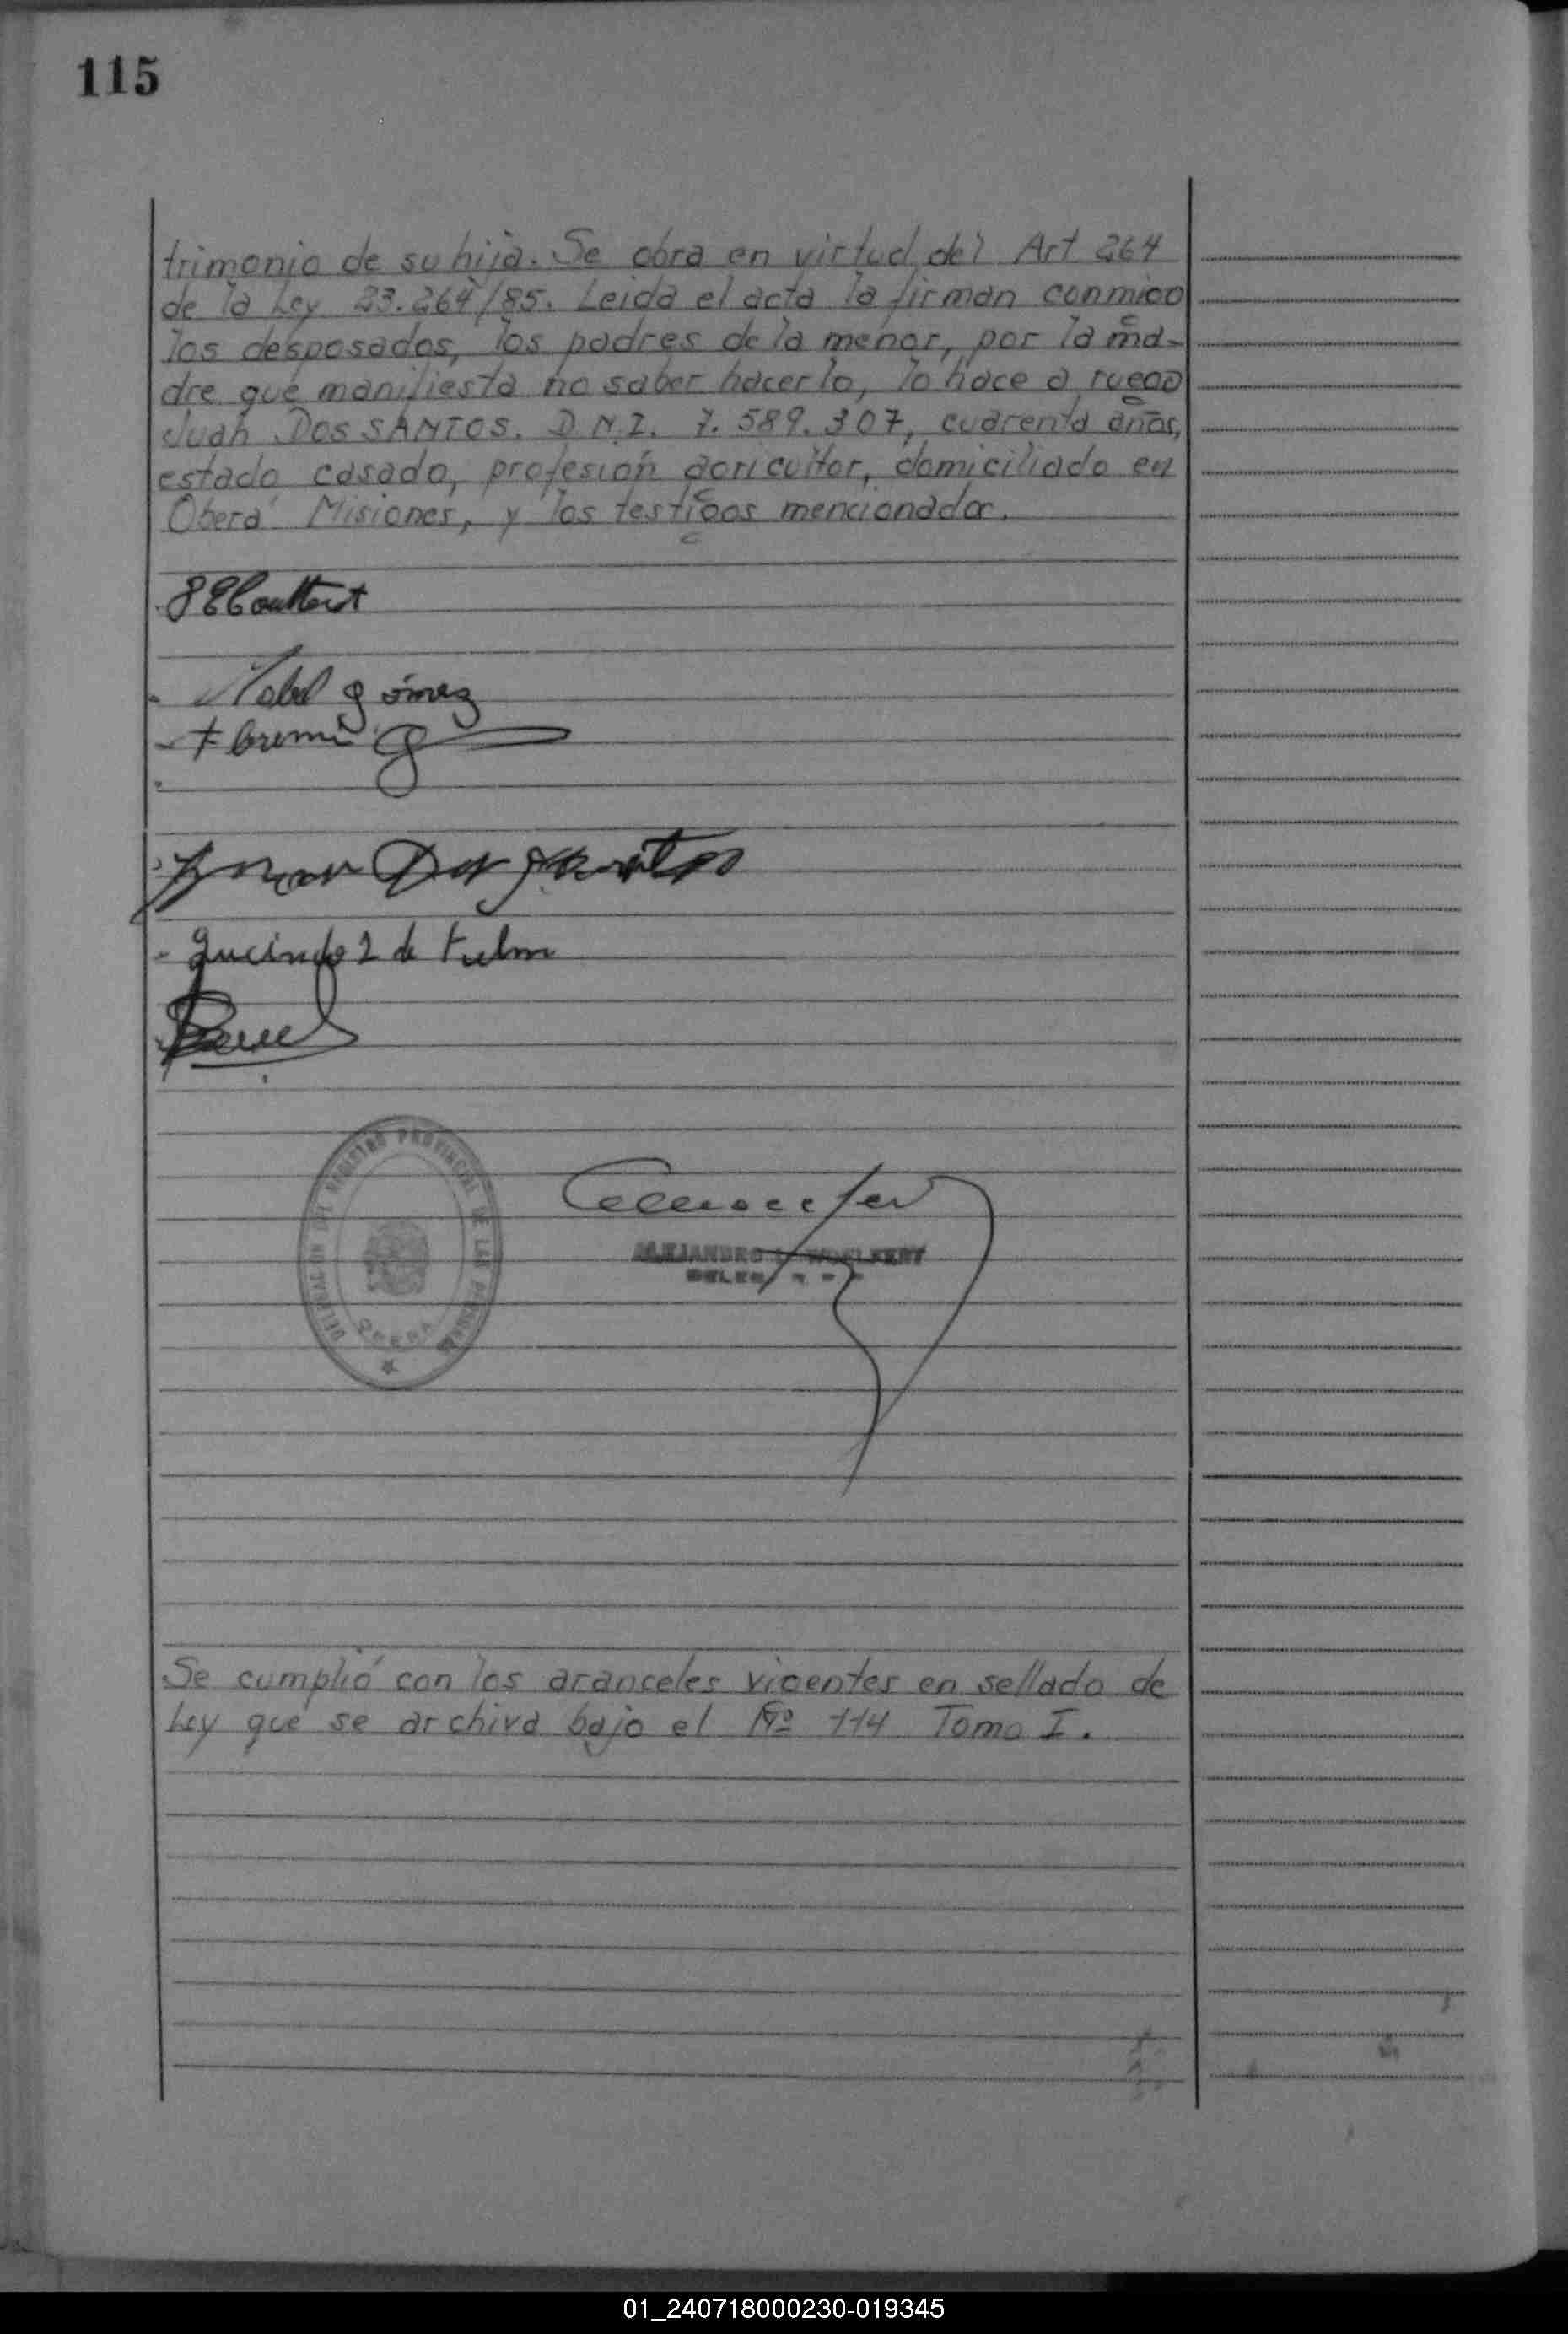 115
trimonio de su hija. Se obra en virtud del Art 264
de la Ley 23.264/85. Leida el acta la firman conmigo
los desposados, los padres de la menor, por la ma-
dre que manifiesta no saber hacerlo, lo hace a ruego
Juan DOS SANTOS. D.N.I. 7.589.307, cuarenta años,
estado casado, profesión agricultor, domiciliado en
Oberá Misiones, y los testigos mencionados.
Gómez
Juan Dos Santos
DELEGACION DEL REGISTRO PROVINCIAL DE LAS PERSONAS
OBERA
ALEJANDRO
Se cumplió con los aranceles vigentes en sellado de
Ley que se archiva bajo el Nº 114 Tomo I.
01_240718000230-019345